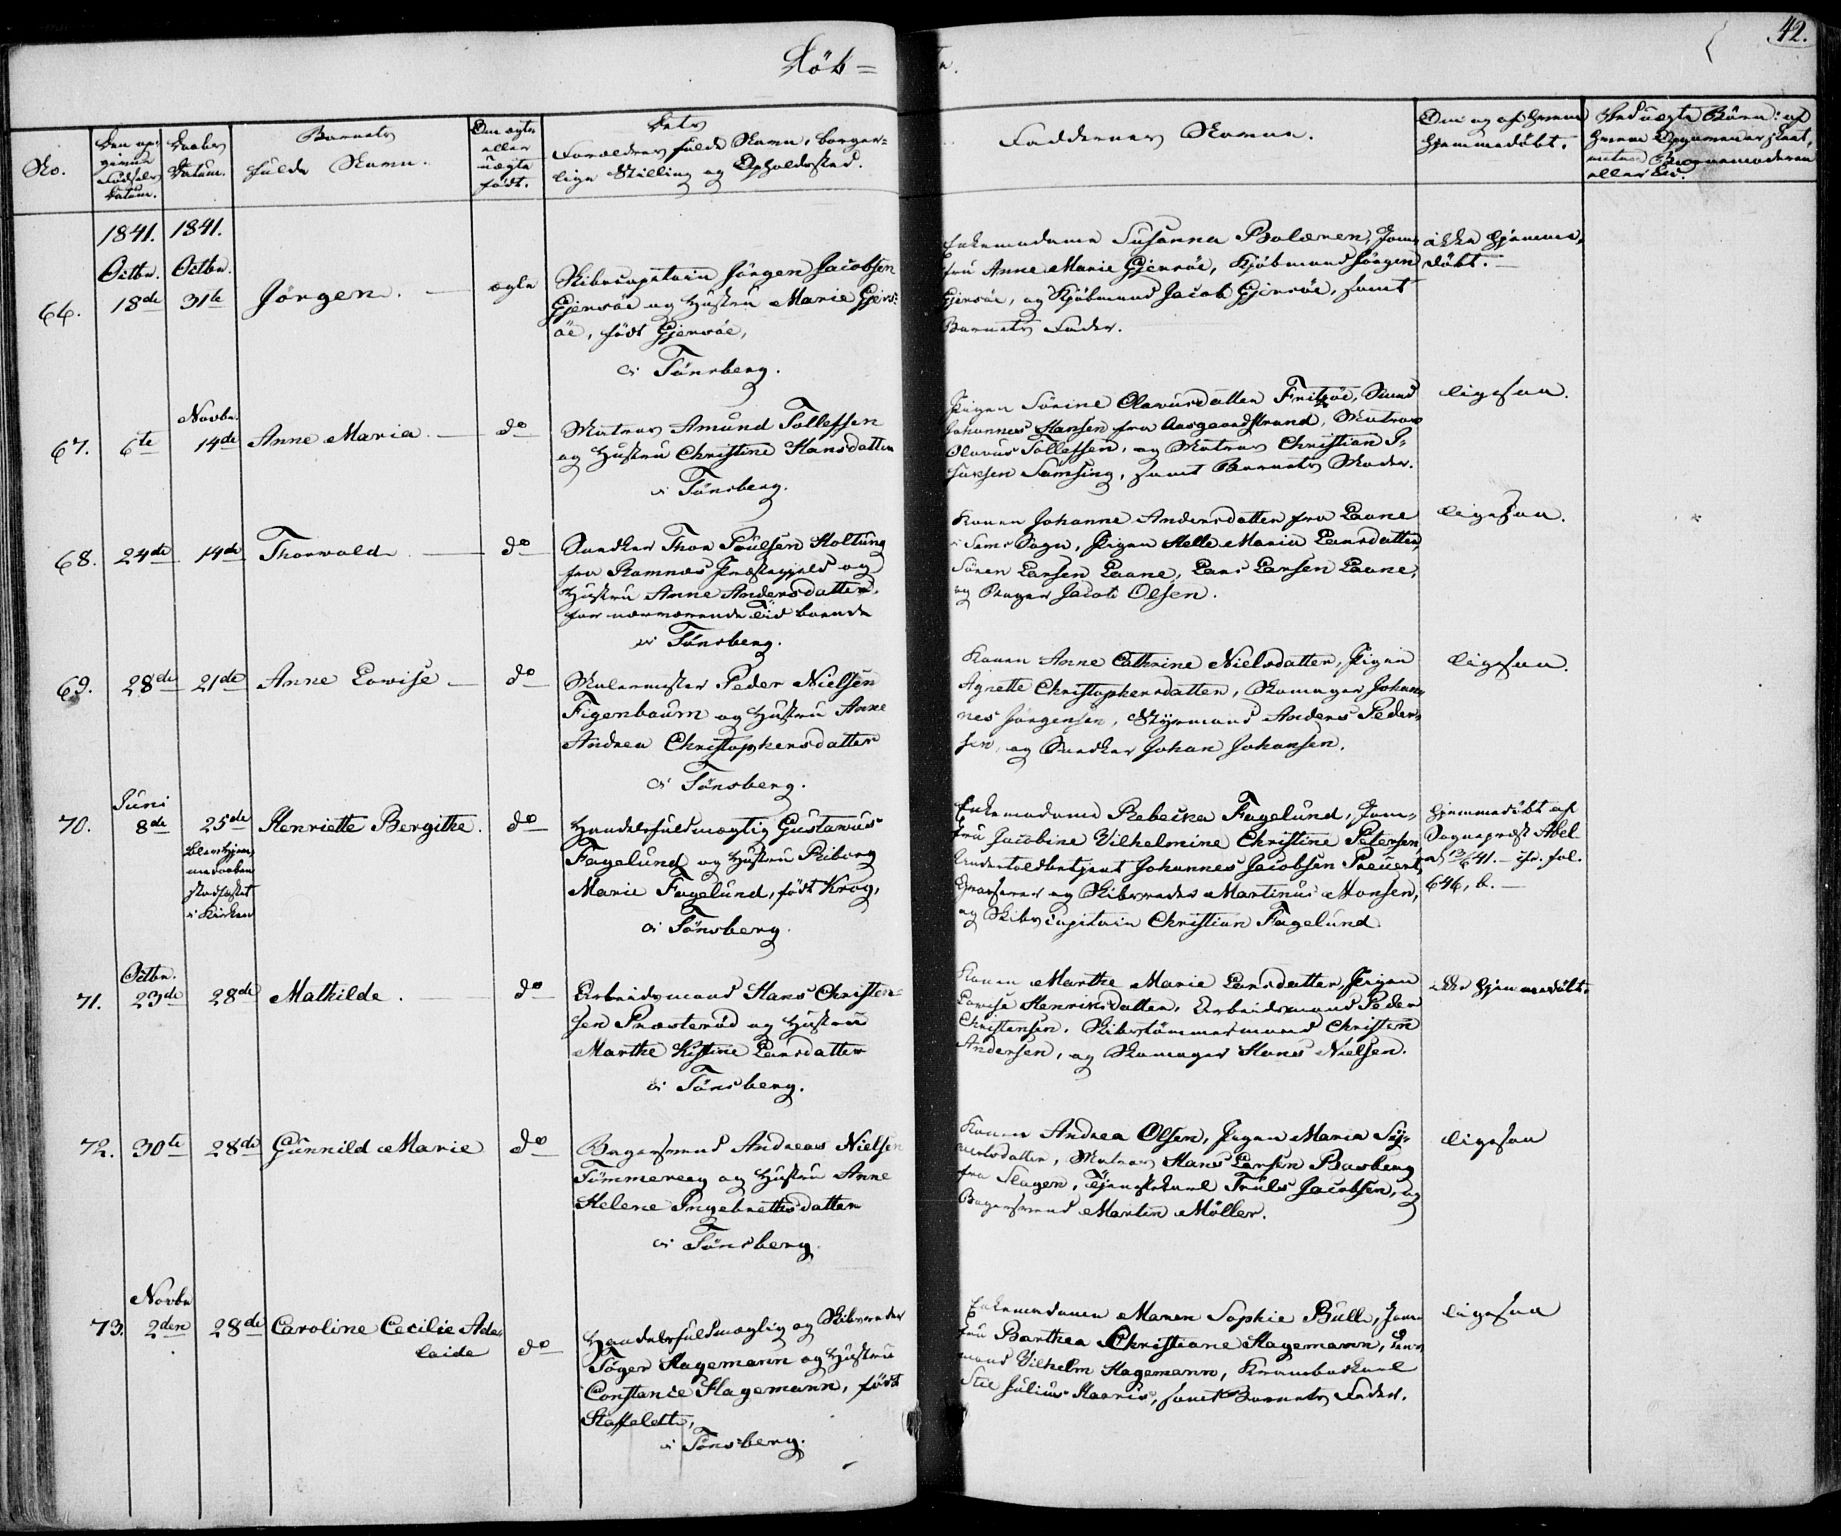 Döb=
42.
No.
Den op-
givne
Födsels
Datum.
Daabs
Datum.
Barnets
fulde Navn.
Om ægte
eller
uægte
födt.
Dets
Forældres fulde Navn, borger-
lige Stilling og Opholdssted.
Faddernes Navne.
Om og af hvem
hjemmedöbt.
Ved uægte Börn: af
hvem
eller ei.
1841. 1841.
Octbr. Octbr.
66. 18de 31te Jörgen. ægte
Skibscapitain Jörgen Jacobsen
Gjersöe og Hustru Marie Gjers-
öe, födt Gjersöe,
i Tönsberg.
Enkemadame Susanna Bolæren, Jom-
fru Anne Marie Gjersöe, Kjöbmand Jörgen
Gjersöe, og Kjöbmand Jacob Gjersöe, samt
Barnets Fader.
ikke hjemme-
döbt.
Novbr.
67. 6te 14de Anne Maria. do
Matros Amund Tollefsen
og Hustru Christine Hansdatter
i Tönsberg.
Pigen Sörine Olavusdatter Fritzöe,
Johannes Hansen fra Aasgaardstrand, Matros
Olavus Tollefsen, og Matros Christian I-
sacsen Samsing, samt Barnets Moder.
ligesaa.
68. 24de 14de Thorvald do
Snedker Thor Poulsen Holtung
fra Ramnæs Præstegjeld og
Hustru Anne Andersdatter,
for nærværende Tid boende
i Tönsberg.
Konen Johanne Andersdatter fra Laane
i Sems Sogn, Pigen Helle Maria Larsdatter,
Sören Larsen Laane, Lars Larsen Laane,
og Bager Jacob Olsen.
ligesaa.
69. 28de 21de Anne Lovise do
Malermester Peder Nielsen
Figenbaum og Hustru Anne
Andrea Christophersdatter
i Tönsberg.
Konen Anne Cathrine Nielsdatter, Pigen
Agnette Christophersdatter, Skomager Johan-
nes Jörgensen, Styrmand Anders Peder-
sen, og Snedker Johan Johansen.
ligesaa.
Juni
70. 8de 25de Henriette Bergitke. do
Blev hjem-
medaaben
stadfæstet
i Kirken
Handelsfuldmægtig Gustavus
Fagelund og Hustru Riborg
Marie Fagelund, födt Krog,
i Tönsberg.
Enkemadame Rebecka Fagelund, Jom-
fru Jacobine Vilhelmine Christine Petersen,
Undertoldbetjent Johannes Jacobsen Preuert,
og Skibsreder Martinus Monsen,
og Skibscapitain Christian Fagelund
Hjemmedöbt af
Sognepræst Abel
13/6 41. cfr. fol.
646, b.
Octbr.
71. 23de 28de Mathilde. do
Arbeidsmand Hans Christen-
sen Præsteröd og Hustru
Marthe Kistine Larsdatter
i Tönsberg.
Konen Marthe Marie Larsdatter, Pigen
Lovise Henriksdatter, Arbeidsmand Peder
Christensen, Skibstömmermand Christen
Andersen, og Skomager Hans Nielsen.
ikke hjemmedöbt.
72. 30te 28de Gunnild Marie do
Bogermand Andreas Nielsen
Tömmeraag og Hustru Anne
Helene Ingebretsdatter
i Tönsberg.
Konen Andrea Olsen, Pigen Maria Sy-
vertsdatter, Matros Hans Larsen Basberg
fra Slagen, Tjenestekarl Truls Jacobsen, og
Bogermand Martin Möller.
ligesaa
Novbr
73. 2den 28de Caroline Cecilie Ade-
laide do
Handelsfuldmægtig og Skibsreder
Töger Hagemann og Hustru
Constance Hagemann, födt
Staffeldt,
i Tönsberg.
Enkemadame Maren Sophie Bull, Jom-
fru Barthea Christiane Hagemann,
Vilhelm Hagemann, Krambodkarl
Julius Harris, samt Barnets Fader.
ligesaa